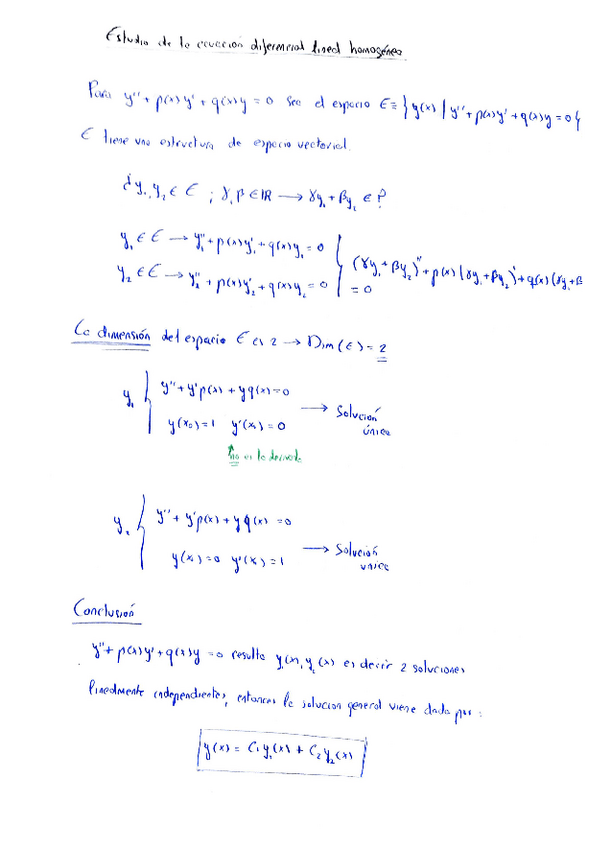 Estudio de la ecuación diferencial lineal homogénea
Para y'' + p(x)y' + q(x)y = 0 sea el espacio E = { y(x) / y'' + p(x)y' + q(x)y = 0 {
E tiene una estructura de espacio vectorial.
¿ y₁, y₂ ∈ E ; γ, β ∈ IR → γy₁ + βy₂ ∈ ?
y₁ ∈ E → y₁'' + p(x)y₁' + q(x)y₁ = 0
y₂ ∈ E → y₂'' + p(x)y₂' + q(x)y₂ = 0
(γy₁ + βy₂)'' + p(x)(γy₁ + βy₂)' + q(x)(γy₁ + β
= 0
La dimensión del espacio E es 2 → Dim(E) = 2
y₁ { y'' + y'p(x) + yq(x) = 0
y(x₀) = 1 y'(x₀) = 0 → Solución
única
no es la derivada
y₂ { y'' + y'p(x) + yq(x) = 0
y(x₀) = 0 y'(x₀) = 1 → Solución
única
Conclusión
y'' + p(x)y' + q(x)y = 0 resulta y₁(x), y₂(x) es decir 2 soluciones
linealmente independientes, entonces la solución general viene dada por:
y(x) = C₁y₁(x) + C₂y₂(x)